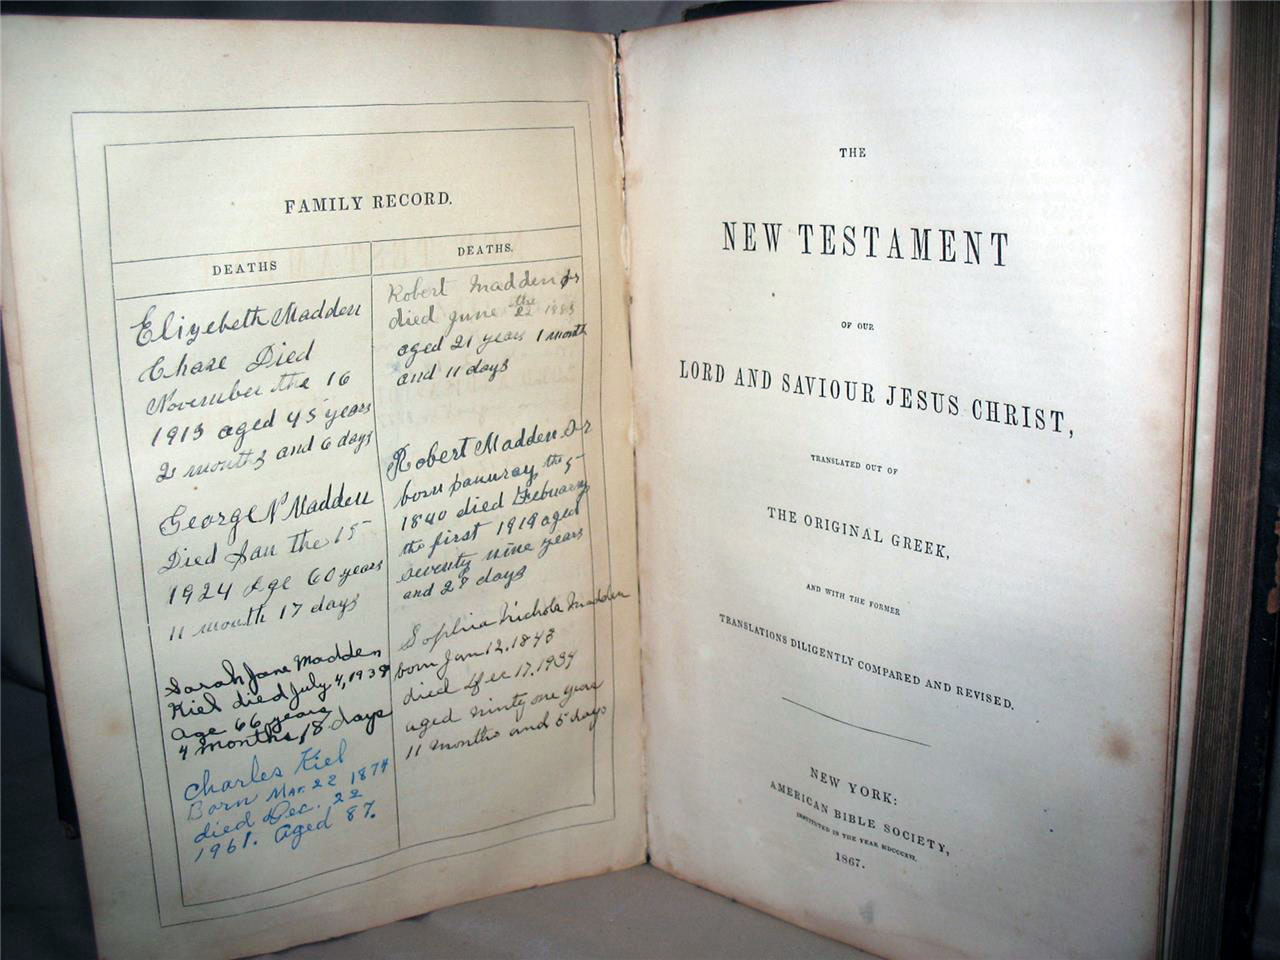 FAMILY RECORD.
DEATHS
Elizebeth Madden
Chase Died
November the 16
1913 aged 45 years
2 months and 6 days
George N Madden
Died Jan the 15
1924 Age 60 years
11 month 17 days
Sarah Jane Madden
Kiel died July 4, 1938
age 66 years
4 months, 18 days
Charles Kiel
Born Mar. 22 1874
died Dec. 22
1961. Aged 87.
DEATHS.
Robert Madden Jr
died June the 22 1883
aged 21 years 1 month
and 11 days
Robert Madden Sr
born Januray the 5
1840 died February
the first 1919 aged
seventy nine years
and 27 days
Sophia Nichols Madden
born Jan 12. 1843
died Dec 17. 1934
aged ninty one years
11 months and 5 days
THE
NEW TESTAMENT
OF OUR
LORD AND SAVIOUR JESUS CHRIST,
TRANSLATED OUT OF
THE ORIGINAL GREEK,
AND WITH THE FORMER
TRANSLATIONS DILIGENTLY COMPARED AND REVISED.
NEW YORK:
AMERICAN BIBLE SOCIETY,
INSTITUTED IN THE YEAR MDCCCXVI.
1867.